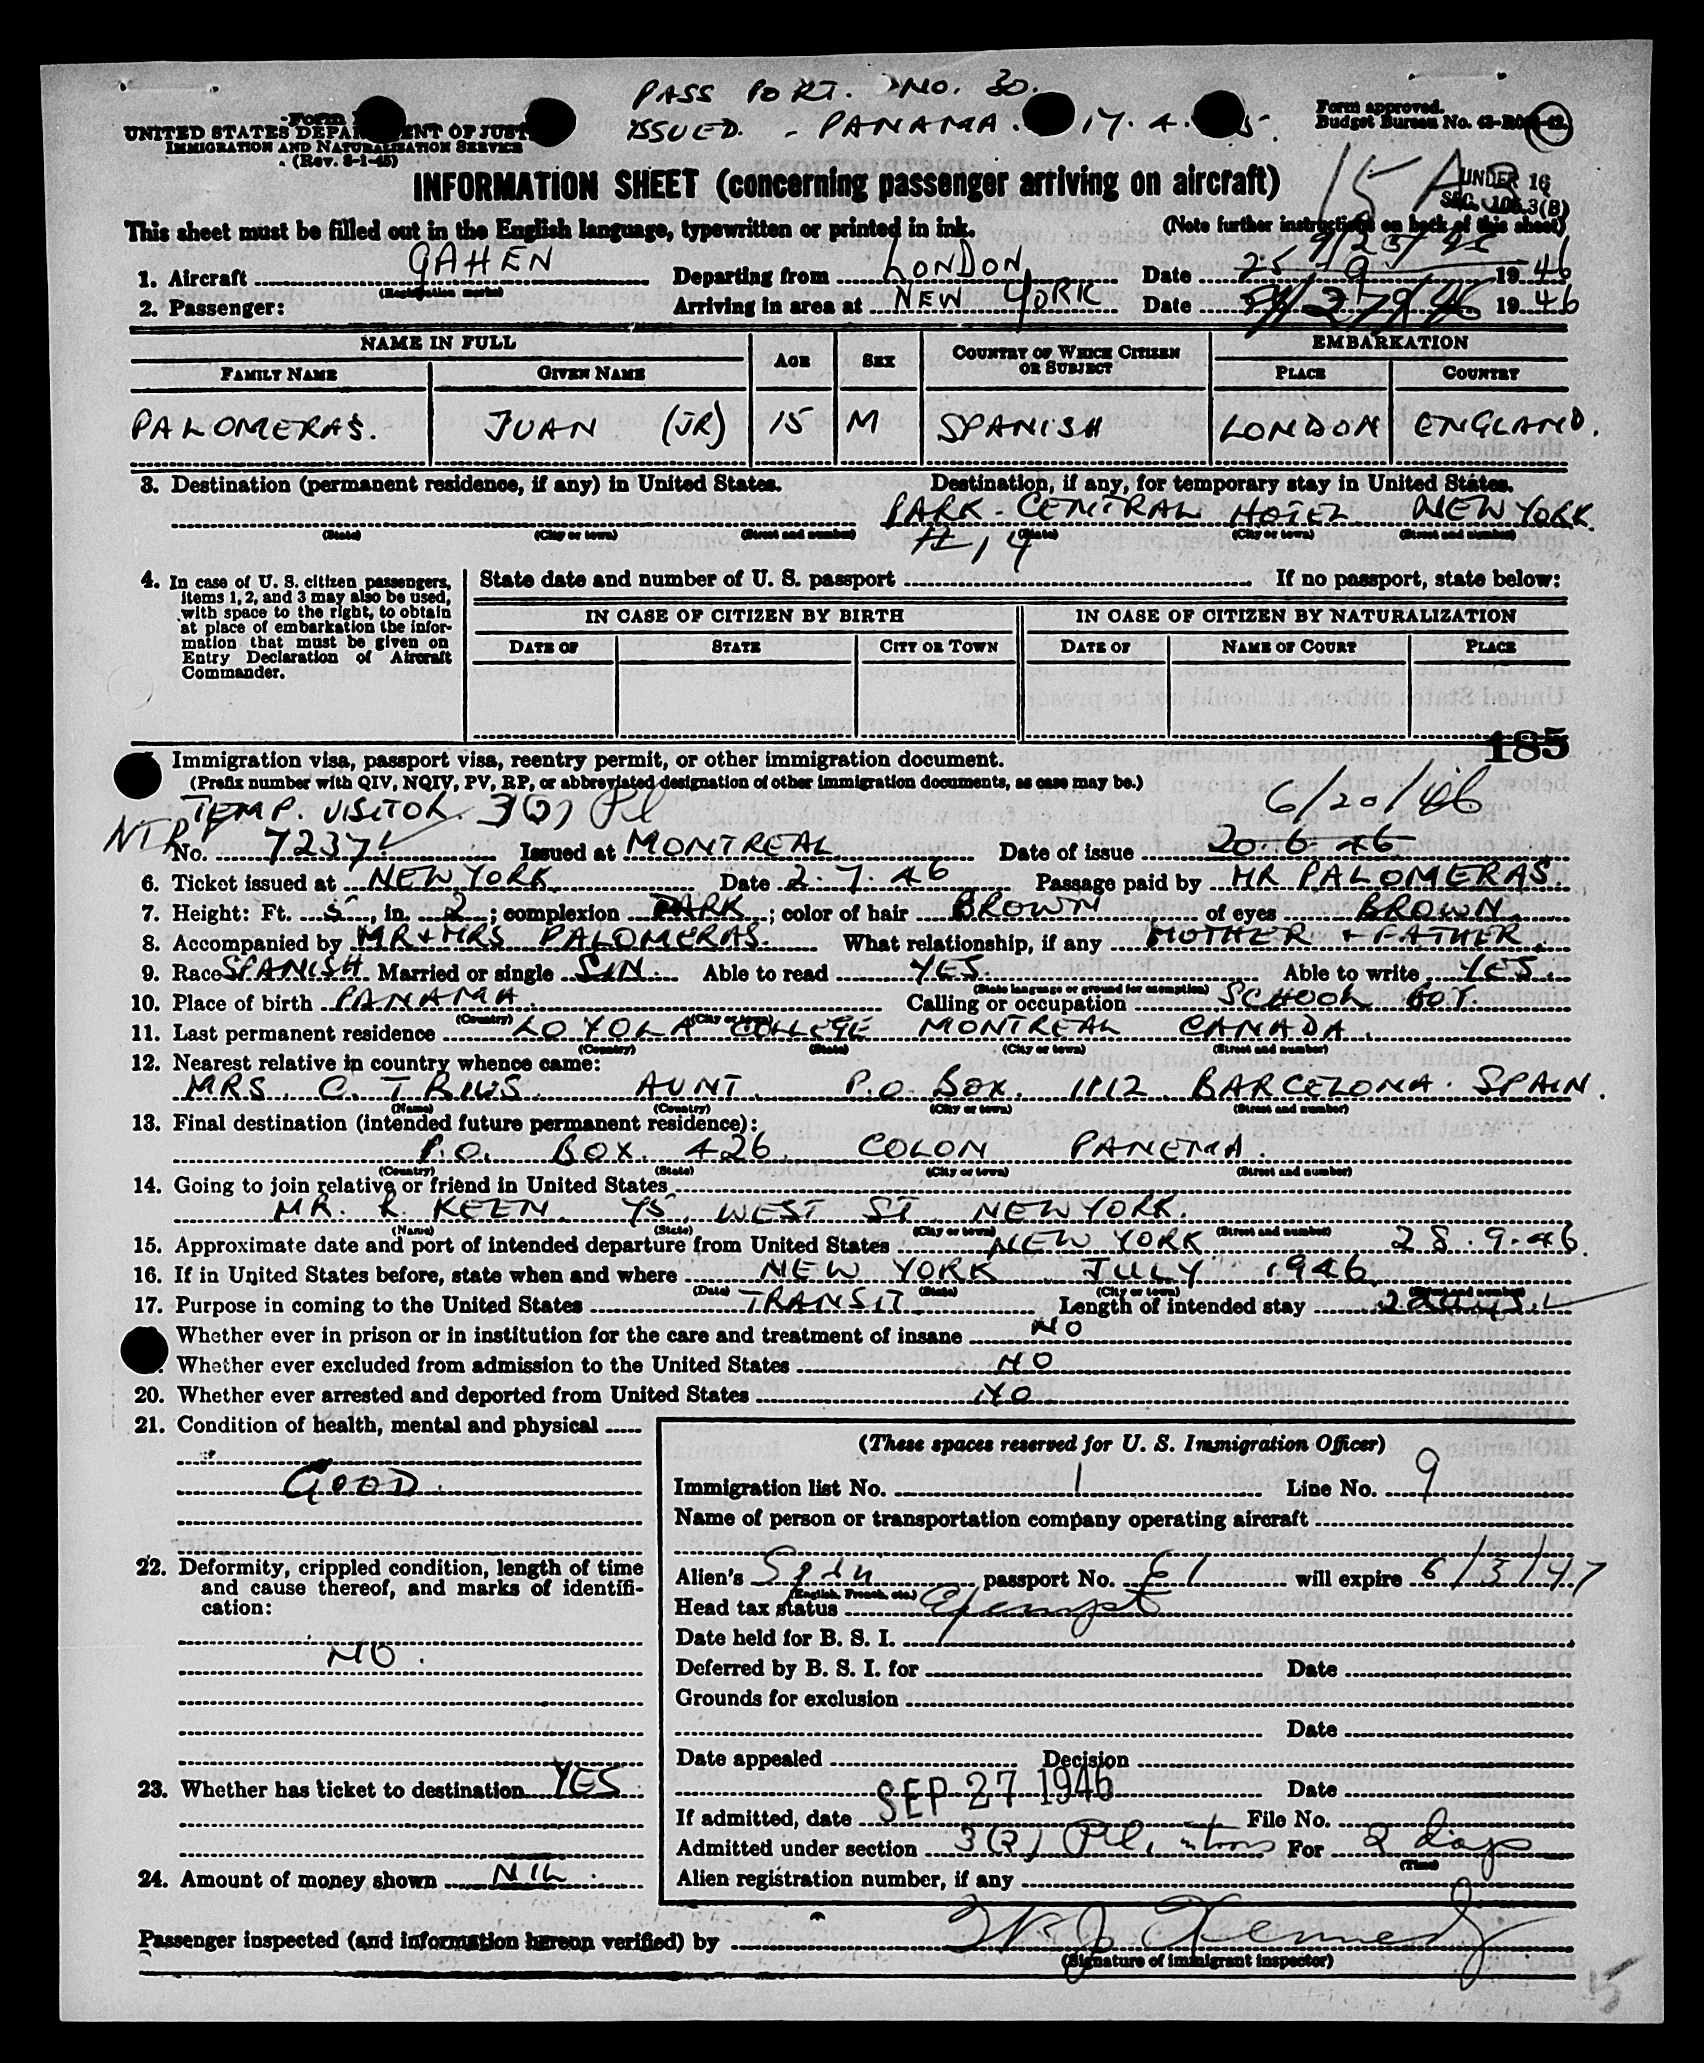 PASS PORT. NO. 30.
ISSUED. - PANAMA. 17. 4.
Form
UNITED STATES DEPARTMENT OF JUSTICE
IMMIGRATION AND NATURALIZATION SERVICE
(Rev. 8-1-45)
Form approved.
Budget Bureau No. 43-
UNDER 16
SEC. 105.3(B)
INFORMATION SHEET (concerning passenger arriving on aircraft)
This sheet must be filled out in the English language, typewritten or printed in ink.
(Note further instructions on back of this sheet)
1. Aircraft GAHEN Departing from LONDON Date 25 9 1946
(Registration marks)
2. Passenger: Arriving in area at NEW YORK Date 1946
NAME IN FULL AGE SEX COUNTRY OF WHICH CITIZEN OR SUBJECT EMBARKATION
FAMILY NAME GIVEN NAME PLACE COUNTRY
PALOMERAS. JUAN (JR) 15 M SPANISH LONDON ENGLAND.
3. Destination (permanent residence, if any) in United States. Destination, if any, for temporary stay in United States.
PARK-CENTRAL HOTEL NEW YORK.
(State) (City or town) (Street and number) (State) (City or town) (Street and number)
4. In case of U. S. citizen passengers, items 1, 2, and 3 may also be used, with space to the right, to obtain at place of embarkation the information that must be given on Entry Declaration of Aircraft Commander.
State date and number of U. S. passport If no passport, state below:
IN CASE OF CITIZEN BY BIRTH IN CASE OF CITIZEN BY NATURALIZATION
DATE OF STATE CITY OR TOWN DATE OF NAME OF COURT PLACE
185
Immigration visa, passport visa, reentry permit, or other immigration document.
(Prefix number with QIV, NQIV, PV, RP, or abbreviated designation of other immigration documents, as case may be.)
TEMP. VISITOR. 3(2) 6/20/46
No. 7237 Issued at MONTREAL Date of issue 20-6-46
6. Ticket issued at NEW YORK Date 2.7.46 Passage paid by MR PALOMERAS.
7. Height: Ft. 5, in. 2; complexion DARK; color of hair BROWN of eyes BROWN.
8. Accompanied by MR + MRS PALOMERAS. What relationship, if any MOTHER + FATHER.
9. Race SPANISH Married or single SIN. Able to read YES. Able to write YES.
(State language or ground for exemption)
10. Place of birth PANAMA. Calling or occupation SCHOOL BOY.
(Country) (City or town)
11. Last permanent residence LOYOLA COLLEGE MONTREAL CANADA.
(Country) (State) (City or town) (Street and number)
12. Nearest relative in country whence came:
MRS. C. AUNT. P.O. BOX. 1112. BARCELONA. SPAIN.
(Name) (Country) (City or town) (Street and number)
13. Final destination (intended future permanent residence):
P.O. BOX. 426. COLON PANEMA.
(Country) (State) (City or town) (Street and number)
14. Going to join relative or friend in United States
MR. R. KEEN. WEST ST. NEW YORK.
(Name) (State) (City or town) (Street and number)
15. Approximate date and port of intended departure from United States NEW YORK 28.9.46.
16. If in United States before, state when and where NEW YORK JULY 1946.
(Date) (State) (City or town) (Street and number)
17. Purpose in coming to the United States TRANSIT. Length of intended stay 2 days.
Whether ever in prison or in institution for the care and treatment of insane NO
Whether ever excluded from admission to the United States NO
20. Whether ever arrested and deported from United States NO.
21. Condition of health, mental and physical
GOOD.
22. Deformity, crippled condition, length of time and cause thereof, and marks of identification:
NO.
23. Whether has ticket to destination YES.
24. Amount of money shown NIL.
(These spaces reserved for U. S. Immigration Officer)
Immigration list No. 1 Line No. 9
Name of person or transportation company operating aircraft
Alien's Spain passport No. 61 will expire 6/3/47
(English, French, etc.)
Head tax status Exempt
Date held for B. S. I.
Deferred by B. S. I. for Date
Grounds for exclusion
Date
Date appealed Decision
Date
If admitted, date SEP 27 1946 File No.
Admitted under section 3(2) For 2 days
(Time)
Alien registration number, if any
Passenger inspected (and information hereon verified) by
(Signature of immigrant inspector)